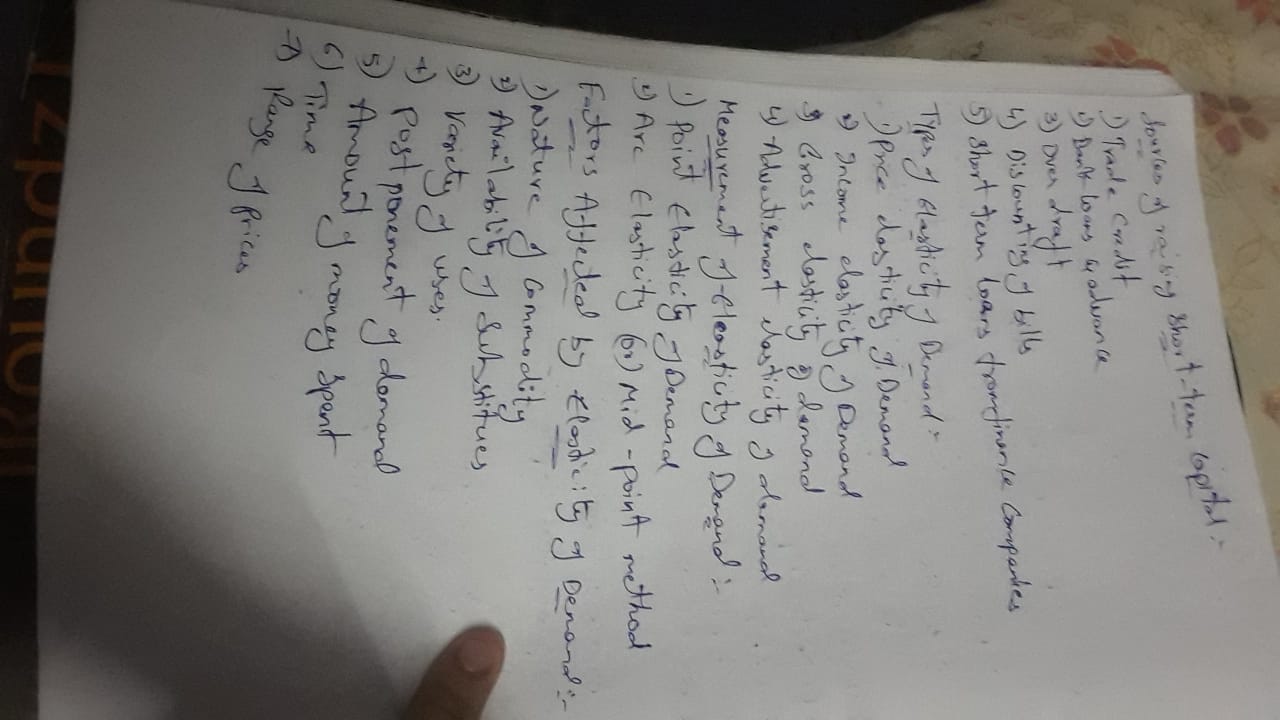 Sources of raising short-term capital :-
1) Trade credit
2) Bank loans & advance
3) Over draft
4) Discounting of bills
5) Short term loans from finance companies
Types of elasticity of Demand :-
1) Price elasticity of Demand
2) Income elasticity of Demand
3) Cross elasticity of demand
4) Advertisement elasticity of demand
Measurement of Elasticity of Demand :-
1) Point Elasticity of Demand
2) Arc Elasticity (or) Mid-point method
Factors Affected by Elasticity of Demand :-
1) Nature of Commodity
2) Availability of Substitues
3) Variety of uses.
4) Postponement of demand
5) Amount of money Spent
6) Time
7) Range of Prices